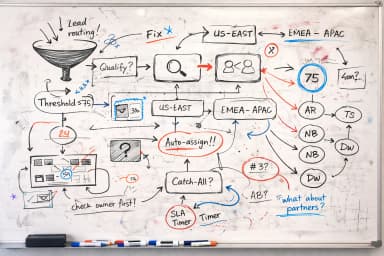 Lead
routing!
Fix
US-EAST
EMEA - APAC
Qualify?
75
Threshold ≤75
US-EAST
EMEA - APAC
AR
TS
24
Auto-assign!!
NB
Dw
?
NB
#3?
Catch-All?
Dw
check owner first!
AB?
what about
partners?
SLA
Timer
Timer